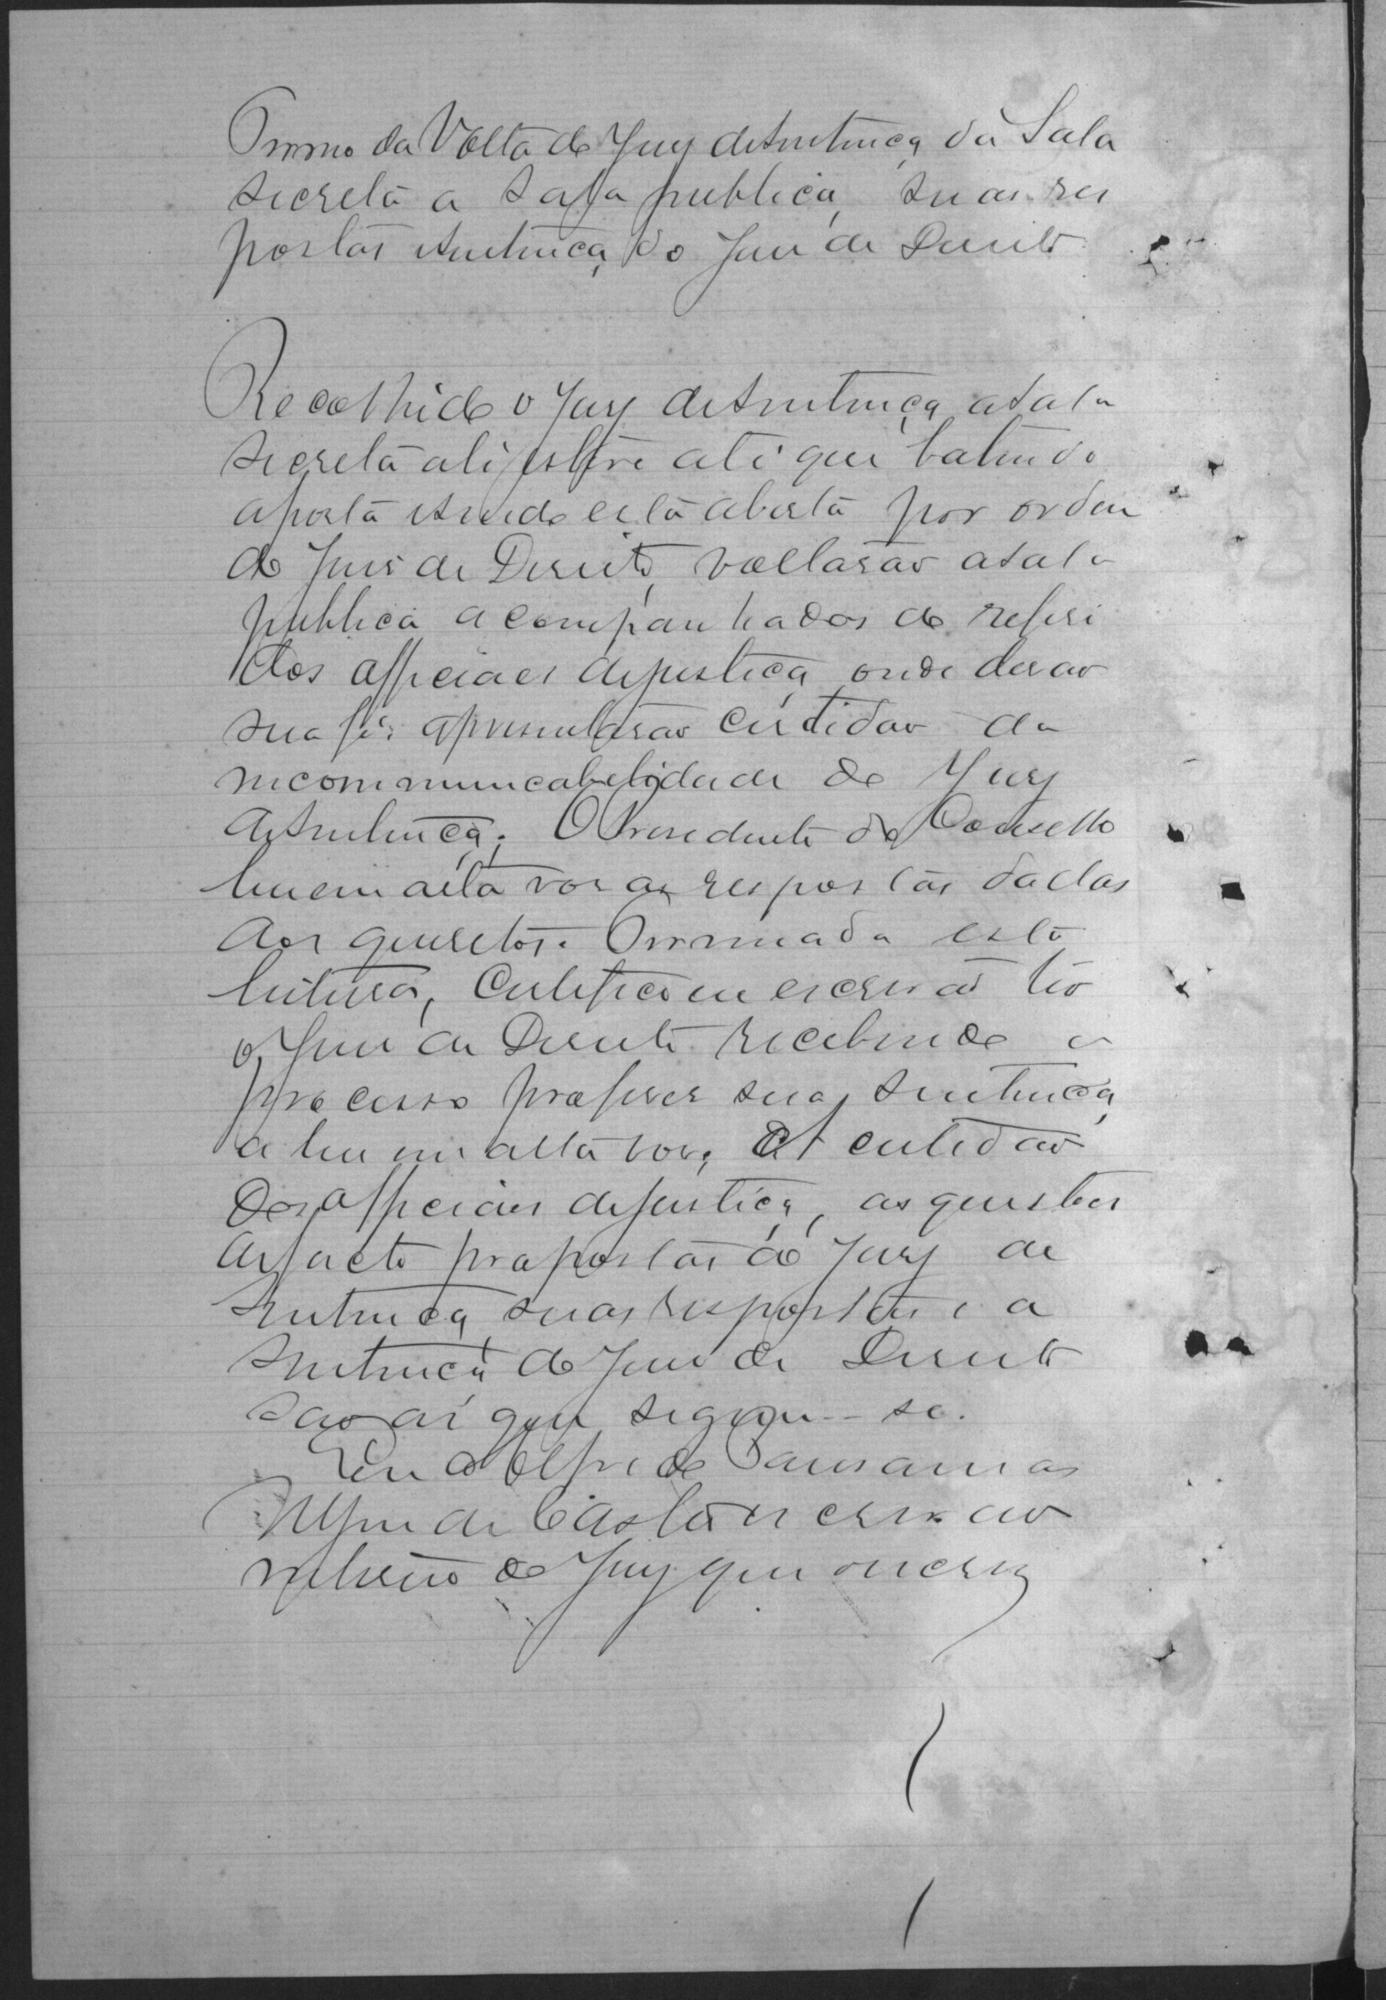 Termo da Volta do Jury de Sentença da Sala
secreta a sala publica, suas res
postas e sentença do Juiz de Direito
Recolhido o Jury de Sentença a sala
secreta ali esteve até que batendo
a porta e sendo esta aberta por ordem
do Juiz de Direito, voltarão a sala
publica acompanhados do referi
dos officiaes de justiça, onde derão
sua fé, apresentarão certidão da
incommunicabilidade do Jury
de Sentença. O Presidente do Conselho
leu em alta voz as respostas dadas
aos quesitos. Terminada esta
leitura, certifico eu escrivão ter
o Juiz de Direito recebendo o
processo proferir sua sentença
a leu em alta voz; A certidão
dos officiaes de justiça, as questões
de facto propostas ao Jury de
Sentença suas respostas e a
sentença do Juiz de Direito
são as que seguem-se.
Eu Alfredo Pausanias
de Castro escrivão
interino do Jury que o escrevi